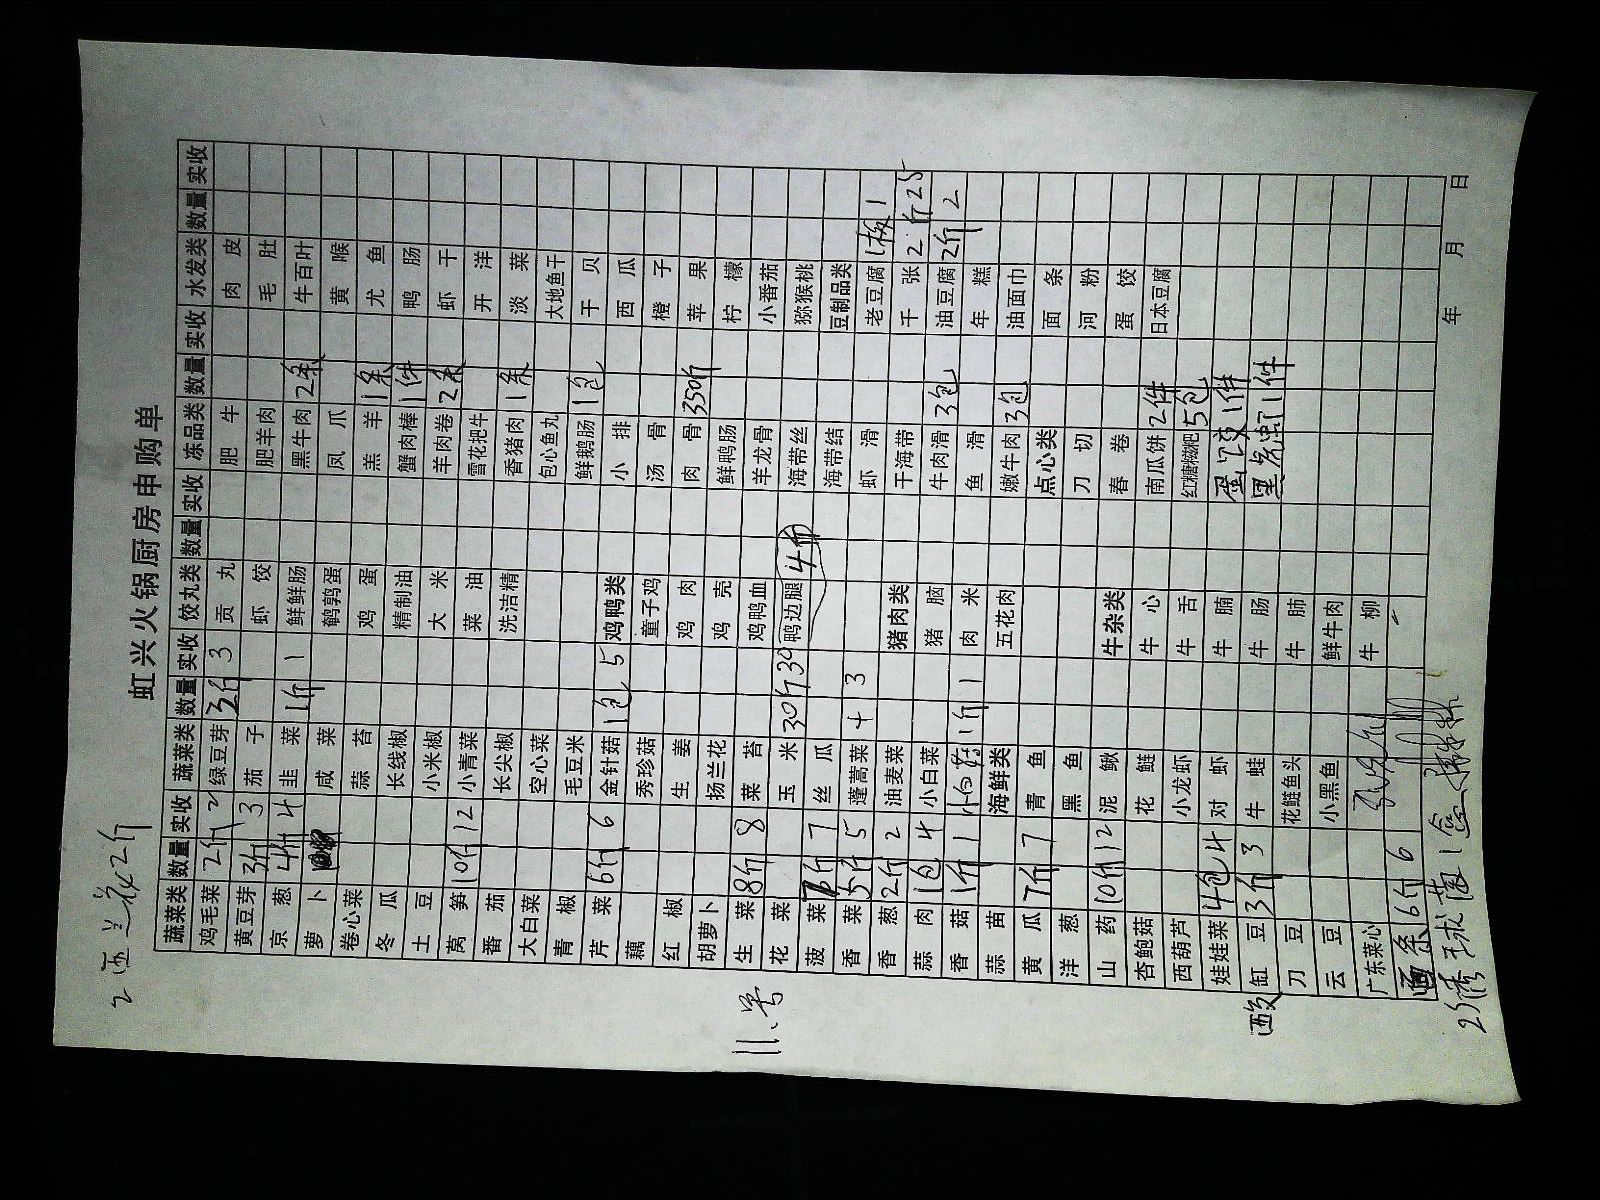 虹兴火锅厨房申购单
蔬菜类 数量 实收 蔬菜类 数量 实收 饺丸类 数量 实收 冻品类 数量 实收 水发类 数量 实收
鸡毛菜 2斤 2 绿豆芽 3斤 3 贡丸 肥牛 肉皮
黄豆芽 3斤 3 茄子 虾饺 肥羊肉 毛肚
京葱 4斤 4 韭菜 1斤 1 鲜鲜肠 黑牛肉 2条 牛百叶
萝卜 咸菜 鹌鹑蛋 凤爪 黄喉
卷心菜 蒜苔 鸡蛋 羔羊 1条 尤鱼
冬瓜 长线椒 精制油 蟹肉棒 1件 鸭肠
土豆 小米椒 大米 羊肉卷 2条 虾干
莴笋 10斤 12 小青菜 菜油 雪花把牛 开洋
番茄 长尖椒 洗洁精 香猪肉 1条 淡菜
大白菜 空心菜 包心鱼丸 大地鱼干
青椒 毛豆米 鲜鹅肠 1包 干贝
芹菜 6斤 6 金针菇 1包 5 鸡鸭类 小排 西瓜
藕 秀珍菇 童子鸡 汤骨 橙子
红椒 生姜 鸡肉 肉骨 350斤 苹果
胡萝卜 扬兰花 鸡壳 鲜鸭肠 柠檬
生菜 8斤 8 菜苔 鸡鸭血 羊龙骨 小番茄
花菜 玉米 30斤 30 鸭边腿 4斤 海带丝 猕猴桃
菠菜 7 丝瓜 海带结 豆制品类
香菜 5斤 5 蓬蒿菜 3 虾滑 老豆腐 1板 1
香葱 2斤 2 油麦菜 猪肉类 干海带 千张 2斤 25
蒜肉 1包 4 小白菜 猪脑 牛肉滑 3包 油豆腐 2斤 2
香菇 1斤 1 1斤 1 肉米 鱼滑 年糕
蒜苗 海鲜类 五花肉 嫩牛肉 3包 油面巾
黄瓜 7斤 7 青鱼 点心类 面条
洋葱 黑鱼 刀切 河粉
山药 10斤 12 泥鳅 牛杂类 春卷 蛋饺
杏鲍菇 花鲢 牛心 南瓜饼 2件 日本豆腐
西葫芦 小龙虾 牛舌 红糖糍粑 5包
娃娃菜 4包 4 对虾 牛腩 蛋饺 1件
豇豆 3斤 3 牛蛙 牛肠 黑虎虾 1件
刀豆 花鲢鱼头 牛肺
云豆 小黑鱼 鲜牛肉
广东菜心 牛柳
面条 6斤 6
年 月 日
11号